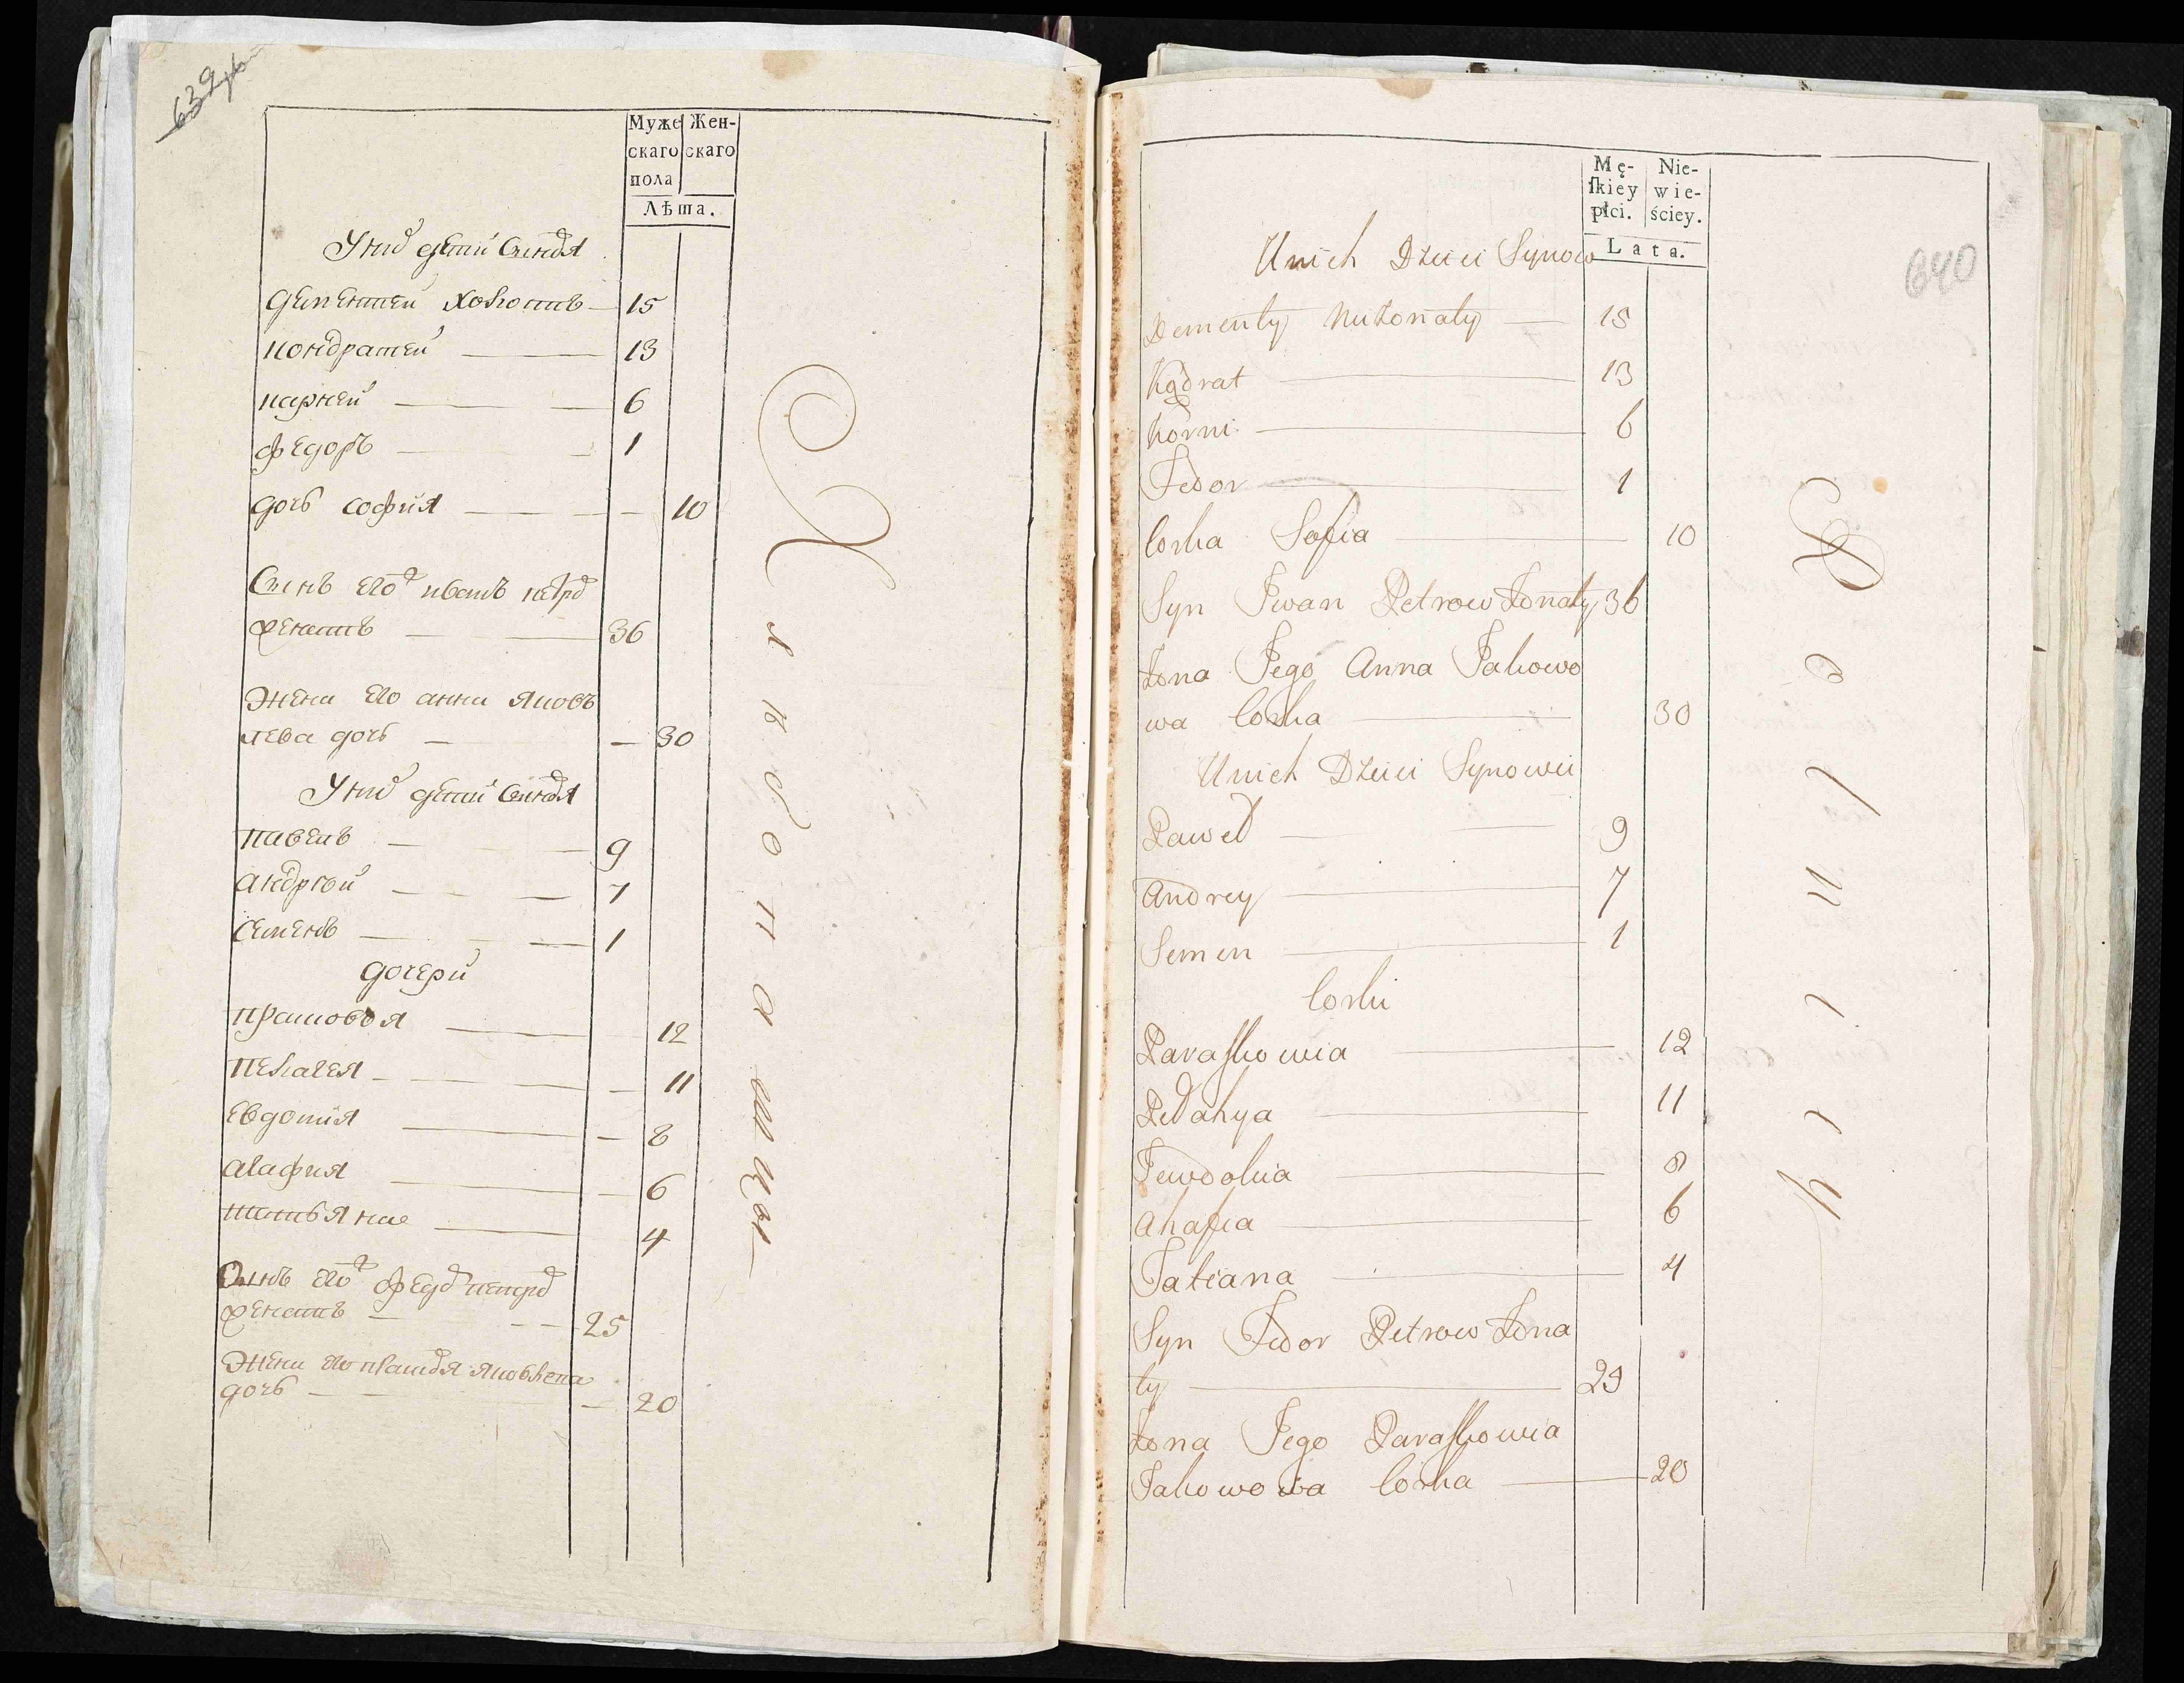 639
Муже Жен-
скаго скаго
пола
Лѣта.
У них детей Синовя
Дементей холостъ 15
Кондратей 13
Карней 6
Федоръ 1
дочь София 10
Синъ его иванъ петров
женатъ 36
Жена его анна Яков
лева дочь 30
У них детей Синовя
Павелъ 9
Андрѣй 7
Семенъ 1
дочери
Прасковя 12
Пелагея 11
Евдокия 8
агафия 6
татьяна 4
Синъ его федор петров
женатъ 25
Жена его Яковлена
дочь 20
640
Mę- Nie-
ſkiey wie-
płci. ściey.
Lata.
U nich Dzieci Synow
Dementy Nużonaty 15
Kądrat 13
Korni 6
Fedor 1
Corka Sofia 10
Syn Iwan Petrow Żonaty 36
Żona Jego Anna Jakowo
wa Corka 30
U nich Dzieci Synowii
Paweł 9
Andrey 7
Semen 1
Corki
Paraſkowia 12
Pełahya 11
Jewdokia 8
Ahafia 6
Tatiana 4
Syn Fedor Petrow Żona
ty 25
Żona Jego Paraſkowia
Jakowowa Corka 20